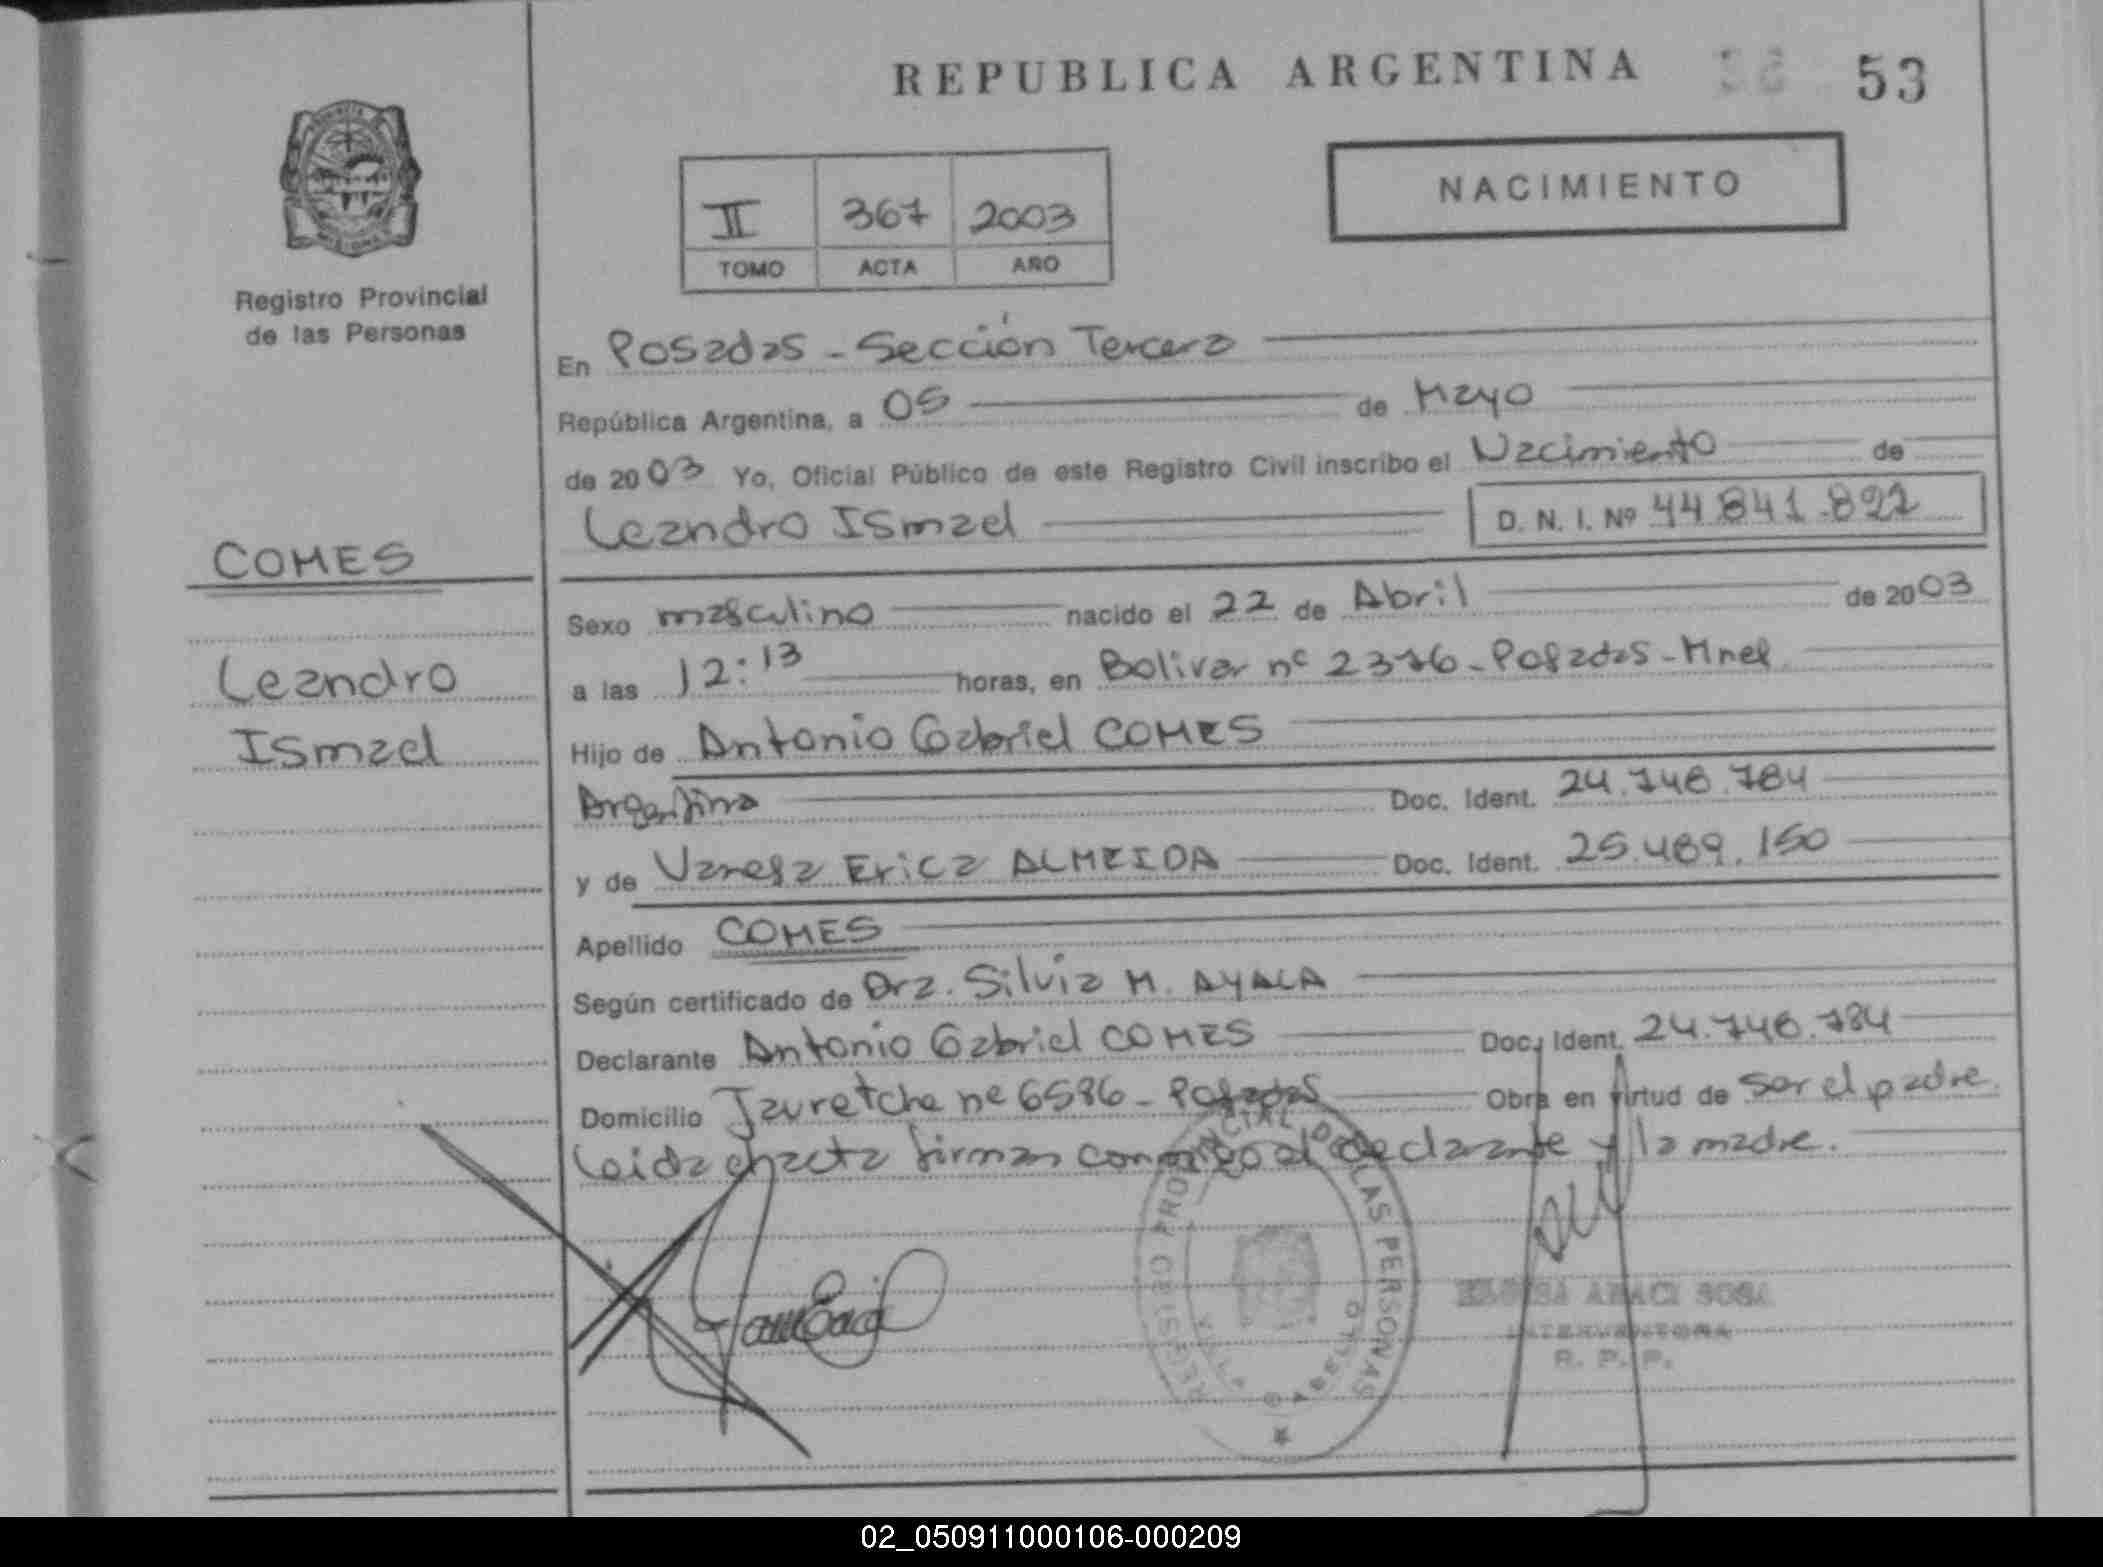 REPUBLICA ARGENTINA 53
NACIMIENTO
II 367 2003
TOMO ACTA AÑO
Registro Provincial
de las Personas
En Posadas - Sección Tercera
República Argentina, a 05 de Mayo
de 2003 Yo, Oficial Público de este Registro Civil inscribo el Nacimiento de
Leandro Ismael D. N. I. Nº 44.841.892
COMES
Leandro
Ismael
Sexo masculino nacido el 22 de Abril de 2003
a las 12:13 horas, en Bolivar nº 2376 - Posadas - Mnes
Hijo de Antonio Gabriel COMES
Argentina Doc. Ident. 24.746.784
y de Vanesa Erica ALMEIDA Doc. Ident. 25.489.150
Apellido COMES
Según certificado de Dra. Silvia M. AYALA
Declarante Antonio Gabriel COMES Doc. Ident. 24.746.784
Domicilio Jauretche nº 6586 - Posadas Obra en virtud de ser el padre.
Leida el acta firman conmigo el declarante y la madre.
REGISTRO PROVINCIAL DE LAS PERSONAS
VILLA CABELLO
ARACI SOSA
INTERVENTORA
R. P. P.
02_050911000106-000209